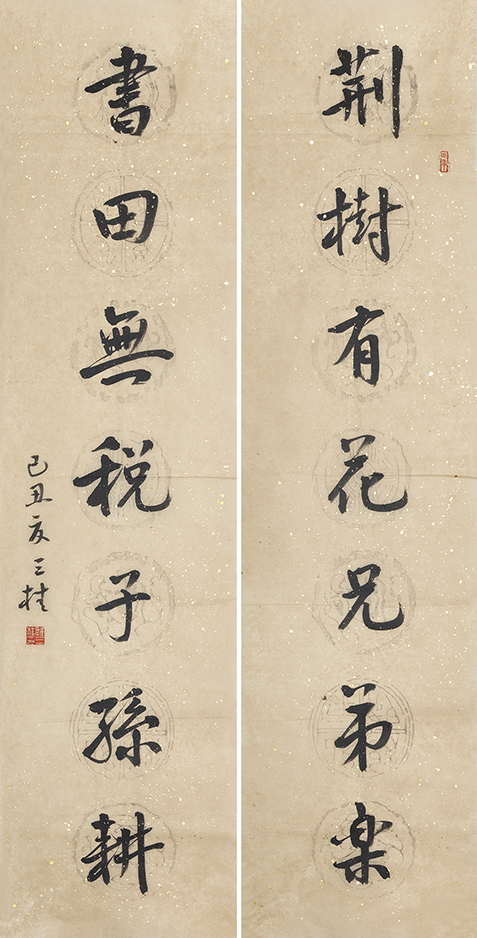 荆樹有花兄弟楽
書田無税子孫耕
己丑夏三桂